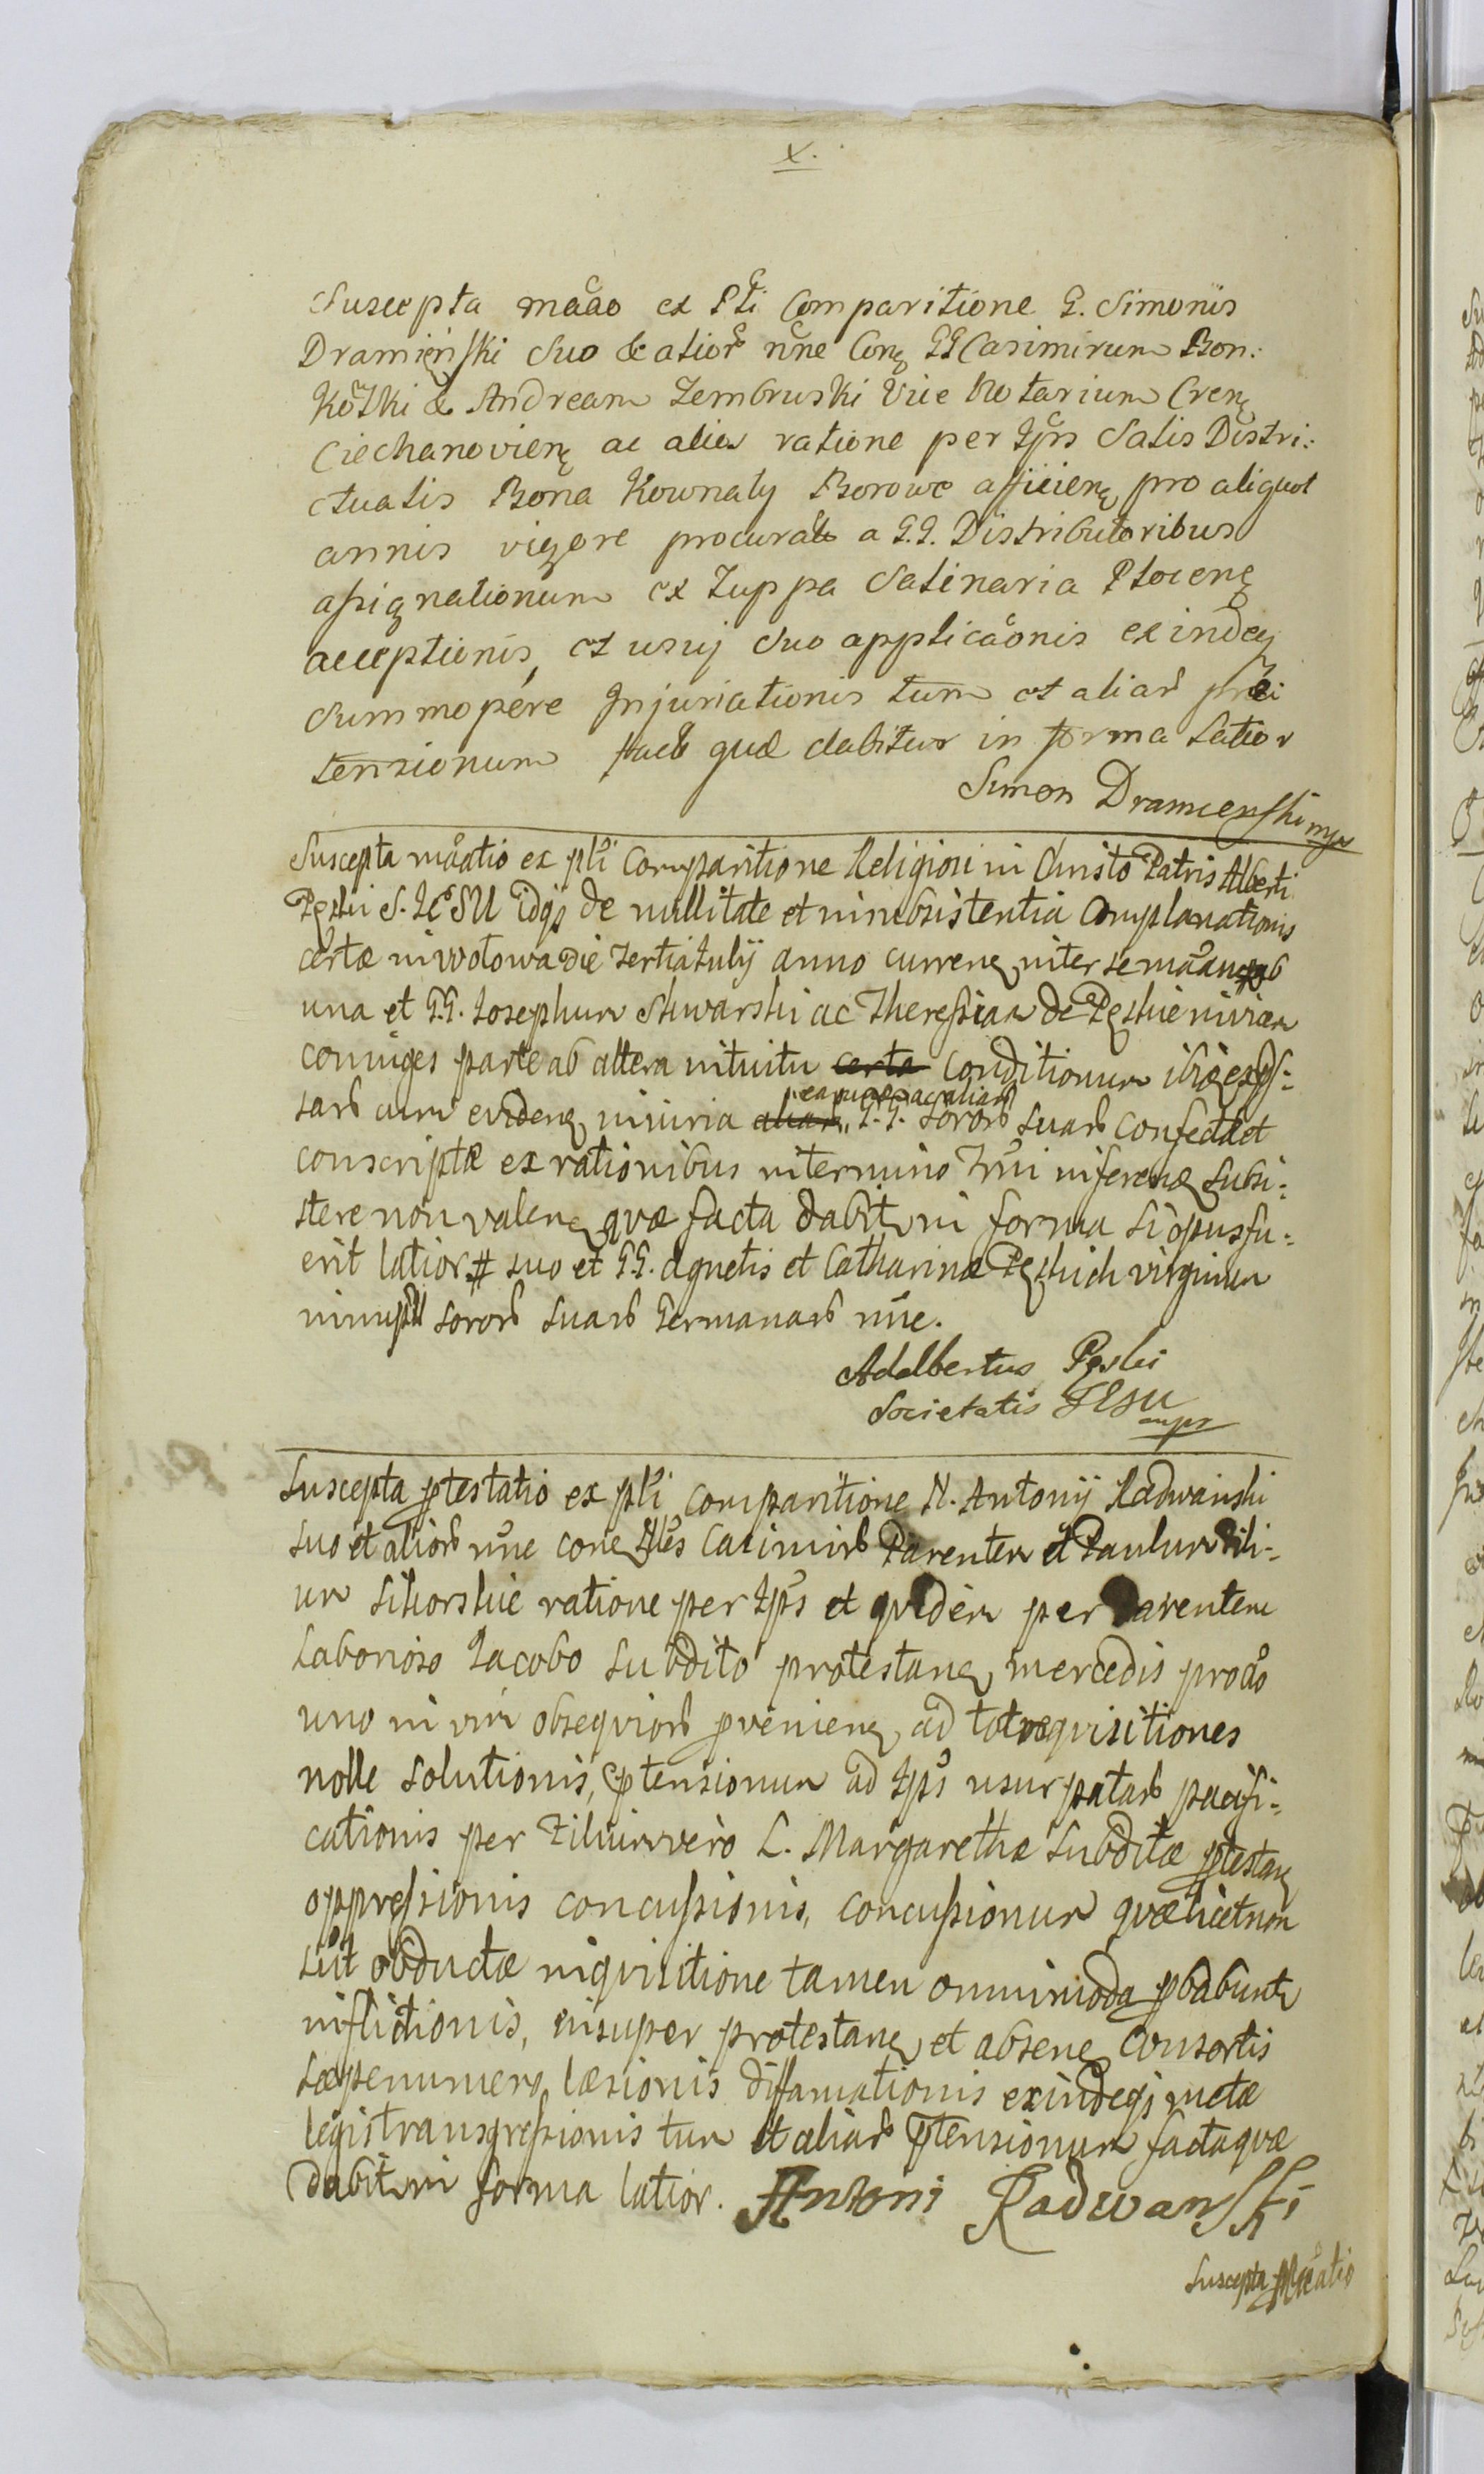 x.
Suscepta mãao ex Pti Comparitione G. Simonis
Dramięnski Suo & alior nne Conę GG Casimirum Bon:
Kotzki & Andream Zembruski Vice Notarium Crenę
Ciechanovienę ac alios ratione per Ipss Salis Distri:
ctualis Bona Kownaty Borowe afficienę pro aliquot
annis vigore procurat a G.G. Distributoribus
assignationum ex Zuppa Salinaria Plocenę
acceptionis, et usuj suo applicãonis exindeq
summopere Injuriationis tum et aliar præ
tensionum facta quæ dabitur in forma latior
Simon Dramienski mp
Suscepta mãatio ex pti Comparitione Religiosi in Christo Patris Alberti
Pęski S. IESU idqs de nullitate et insubsistentia Complanationis
certæ in Wolowa Die tertia Iulij anno currenę inter se mãanę ab
una et G.G. Iosephum Skwarski ac Theressiam de Pęskie invicem
coniuges parte ab altera intuitu certa conditionum ibi expres:
sar cum evidenę iniuria aliar G.G. Soror suar confectæ et
eaque ac aliar
conscriptæ ex rationibus in termino Iuri inferenę subsi:
stere non valenę quæ facta dabitr in forma si opus fu:
erit latior # suo et G.G. Agnetis et Catharinæ Pęskich virginum
innuptar soror suar Germanar nne.
Adalbertus Pęski
Societatis JESU
mp
Suscepta ptestatio ex pti Comparitione N. Antonij Radwanski
suo et alior nne conę Nbles Casimir Parentem et Paulum Fili-
um Sikorskie ratione per Ipss et quidem per Parentem
Laborioso Iacobo Subdito protestanę mercedis pro ão
uno in vim obsequior pvenienę ad tot requisitiones
nolle solutionis, ptensionum ad Ipss usurpatar pacifi-
cationis per Filium vero L. Margarethæ Subditæ ptestanę
oppressionis concussionis, concussionum quæ licet non
sut obductæ inquisitione tamen omnimoda pbabuntr
inflictionis, insuper protestanę et absenę Consortis
sæpenumero læsionis diffamationis exindeqs metæ
legis transgressionis tum et aliar ptensionum facta quæ
dabitr in forma latior. Antoni Radwanski
Suscepta